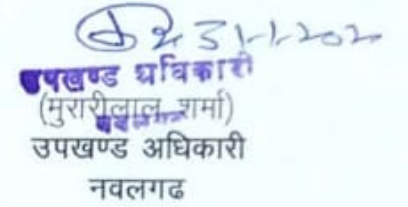 31-1-202
उपखण्ड अधिकारी
(मुरारीलाल शर्मा)
उपखण्ड अधिकारी
नवलगढ